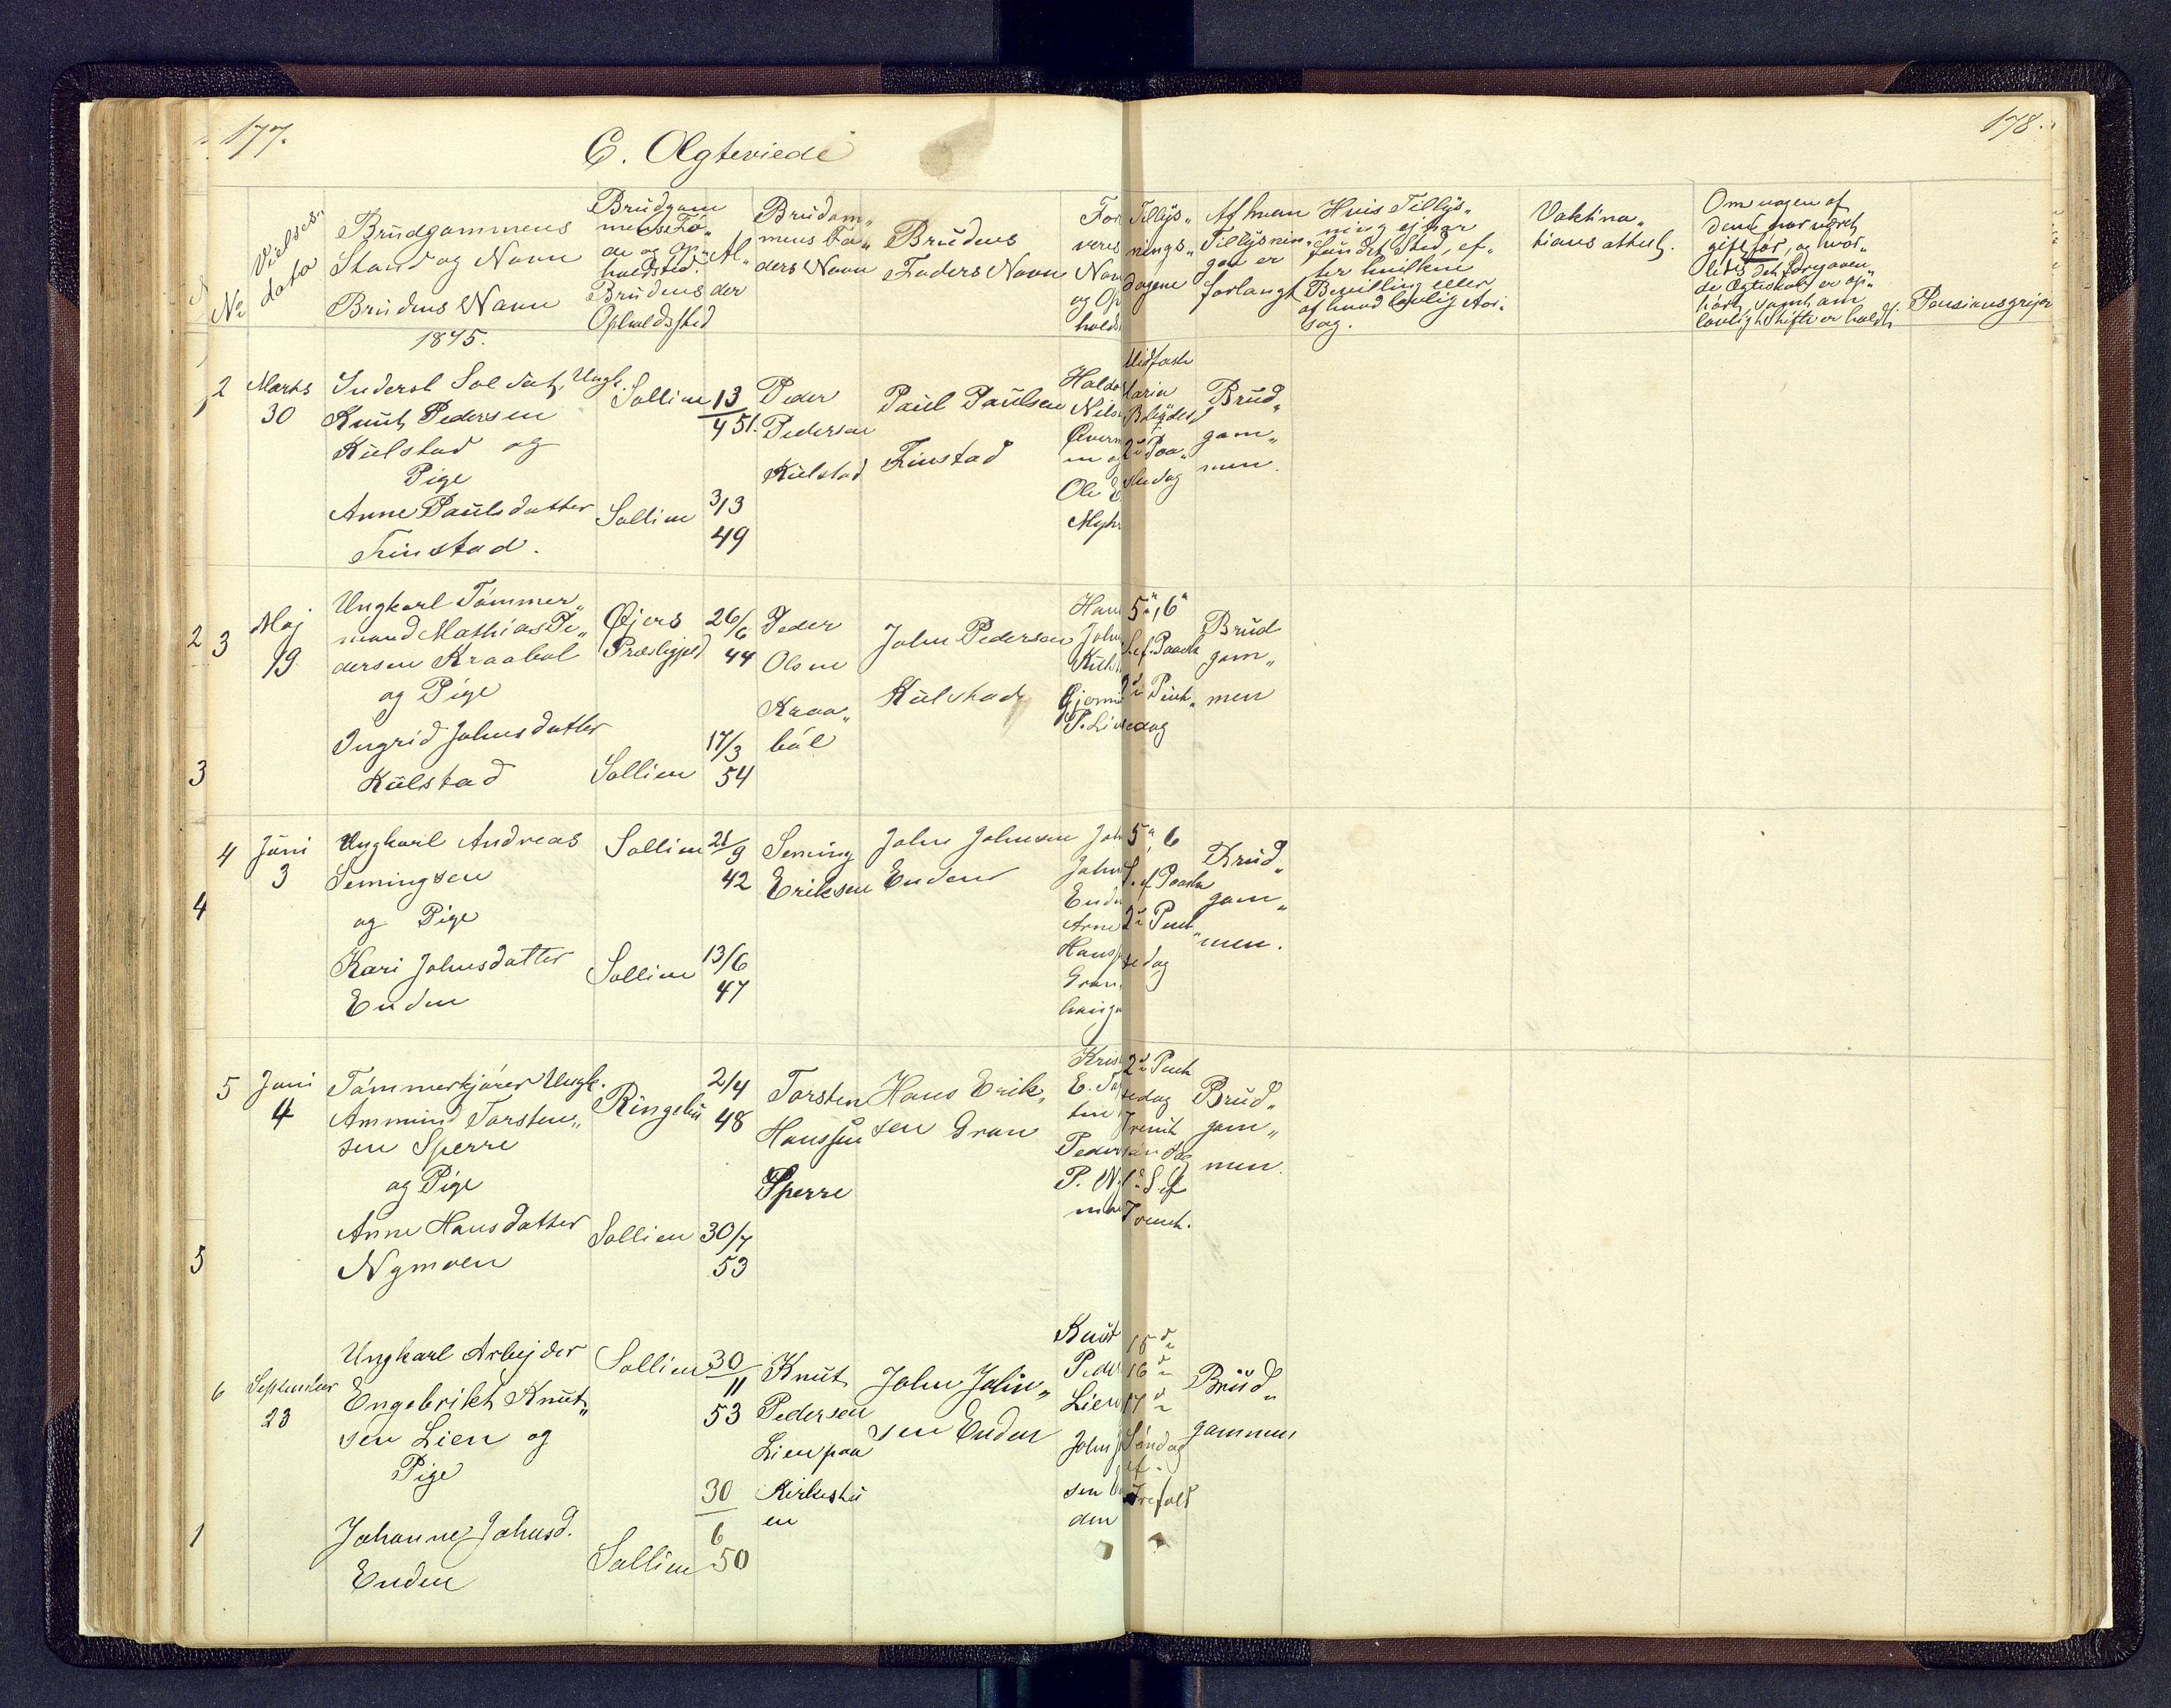 177.
178.
C. Ægteviede
No
Vielses-
dato
Brudgommens
Stand og Navn
Brudens Navn
Brudgom
mens Fø-
de og Op-
holdssted.
Brudens
Opholdssted
Al-
der
Brudgom-
mens Fa-
ders Navn
Brudens
Faders Navn
For
veres
Nav
og Op
holds
Tillys-
nings-
dagene
Af hvem
Tillysnin-
gen er
forlangt
Hvis Tillys-
ning ej har
fundet Sted, ef-
ter hvilken
Bevilling eller
af hvad lovlig Aar-
sag.
Vaktina-
tions attest.
Om nogen af
dem har været
gift før, og hvor-
ledes det foregaaen-
de Ægteskab er op-
hørt, samt om
lovligt Skifte er holdt.
Pensionsgreier
1875.
2
Marts
30
Inderst Soldat, Ungk.
Knut Pedersen
Kulstad og
Pige
Anne Paulsdatter
Finstad.
Sollien
Sollien
13
4 51.
3/3
49
Peder
Pedersen
Kulstad
Paul Paulsen
Finstad
Haldo
Nils
Øverm
en og
Ole E
Myhr
Midfaste
Maria
Bebudels
2d Paa-
skedag
Brud-
gom-
men.
2 3
Maj
19
Ungkarl Tømmer-
mand Mathias Pe-
dersen Kraabøl
og Pige
Ingrid Johnsdatter
Kulstad
Øjers
Præstegjeld
Sollien
26/6
44
17/3
54
Peder
Olsen
Kraa-
bøl
John Pedersen
Kulstad
Han
John
Kuls
Gjermu
P. Lien
5te, 6te
S. ef. Paaske
2d Pint-
sedag
Brud
gom-
men
3
4
Juni
3
Ungkarl Andreas
Semingsen
og Pige
Kari Johnsdatter
Enden
Sollien
Sollien
21/9
42
13/6
47
Seming
Eriksen
John Johnsen
Enden
Joh
Johns
Ende
Arne
Hans
Gran
haugen
5te, 6
S. ef Paaske
2d Pint-
sedag
Brud-
gom-
men.
4
5
Juni
4
Tømmerkjører Ungk.
Ammund Torsten-
sen Sperre
og Pige
Anne Hansdatter
Nymoen
Ringebu
Sollien
2/4
48
30/7
53
Torsten
Hanssen
Sperre
Hans Erik-
sen Gran
Kris
E. To
ten
Peder
P. Ny
moe
2d Pint
sedag
Trenit
søndag
1ste S. ef
Trenit.
Brud-
gom-
men.
5
6
September
23
Ungkarl Arbejder
Engebrikt Knut-
sen Lien og
Pige
Johanne Johnsd.
Enden
Sollien
Sollien
30
11
53
30
6
50
Knut
Pedersen
Lien paa
Kirkestu
en
John John-
sen Enden
Knut
Peder
Lien
John J
sen En
den
15de
16de
17de
Søndag
ef.
Trefold
Brud-
gommen
1